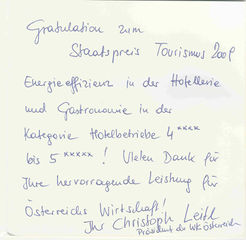 Gratulation zum
Staatspreis Tourismus 2009
Energieeffizienz in der Hotellerie
und Gastronomie in der
Kategorie Hotelbetriebe 4****
bis 5*****! Vielen Dank für
Ihre hervorragende Leistung für
Österreichs Wirtschaft!
Ihr Christoph Leitl
Präsident der WK Österreich